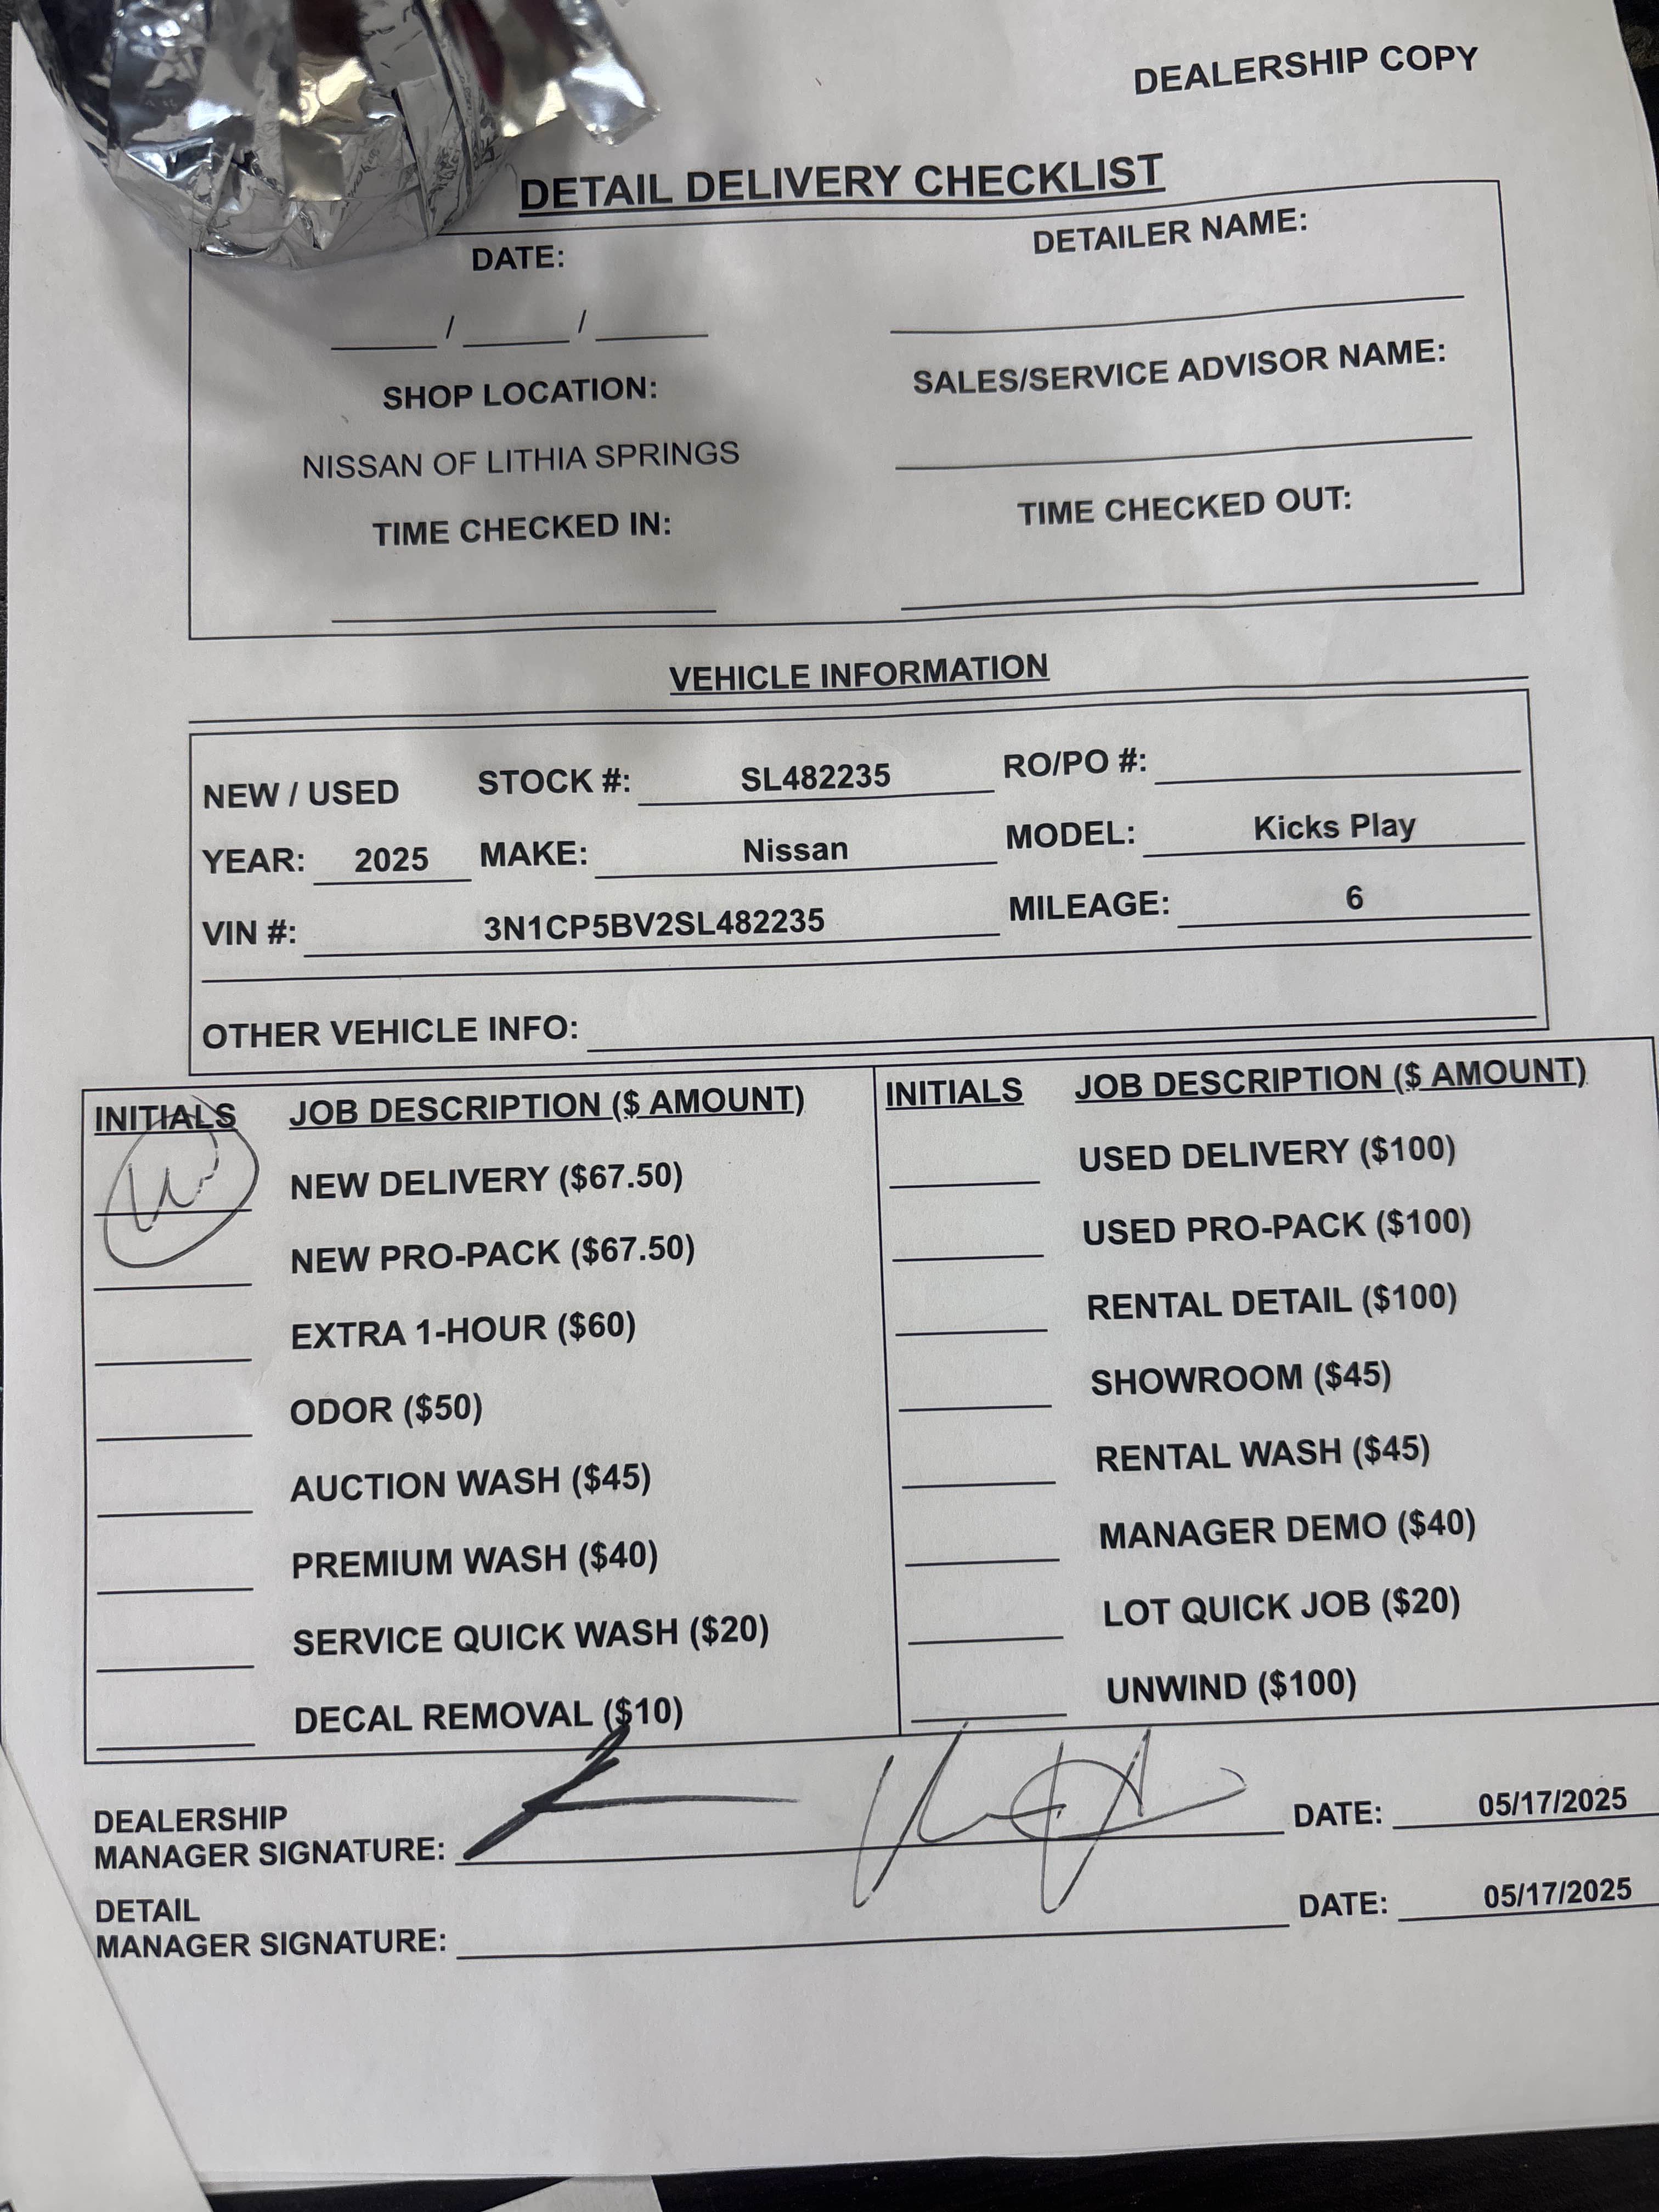 DEALERSHIP COPY
DETAIL DELIVERY CHECKLIST
DATE:
DETAILER NAME:
/ /
SHOP LOCATION:
SALES/SERVICE ADVISOR NAME:
NISSAN OF LITHIA SPRINGS
TIME CHECKED IN:
TIME CHECKED OUT:
VEHICLE INFORMATION
NEW / USED STOCK #: SL482235 RO/PO #:
YEAR: 2025 MAKE: Nissan MODEL: Kicks Play
VIN #: 3N1CP5BV2SL482235 MILEAGE: 6
OTHER VEHICLE INFO:
INITIALS JOB DESCRIPTION ($ AMOUNT)
NEW DELIVERY ($67.50)
NEW PRO-PACK ($67.50)
EXTRA 1-HOUR ($60)
ODOR ($50)
AUCTION WASH ($45)
PREMIUM WASH ($40)
SERVICE QUICK WASH ($20)
DECAL REMOVAL ($10)
INITIALS JOB DESCRIPTION ($ AMOUNT)
USED DELIVERY ($100)
USED PRO-PACK ($100)
RENTAL DETAIL ($100)
SHOWROOM ($45)
RENTAL WASH ($45)
MANAGER DEMO ($40)
LOT QUICK JOB ($20)
UNWIND ($100)
DEALERSHIP
MANAGER SIGNATURE: DATE: 05/17/2025
DETAIL
MANAGER SIGNATURE: DATE: 05/17/2025